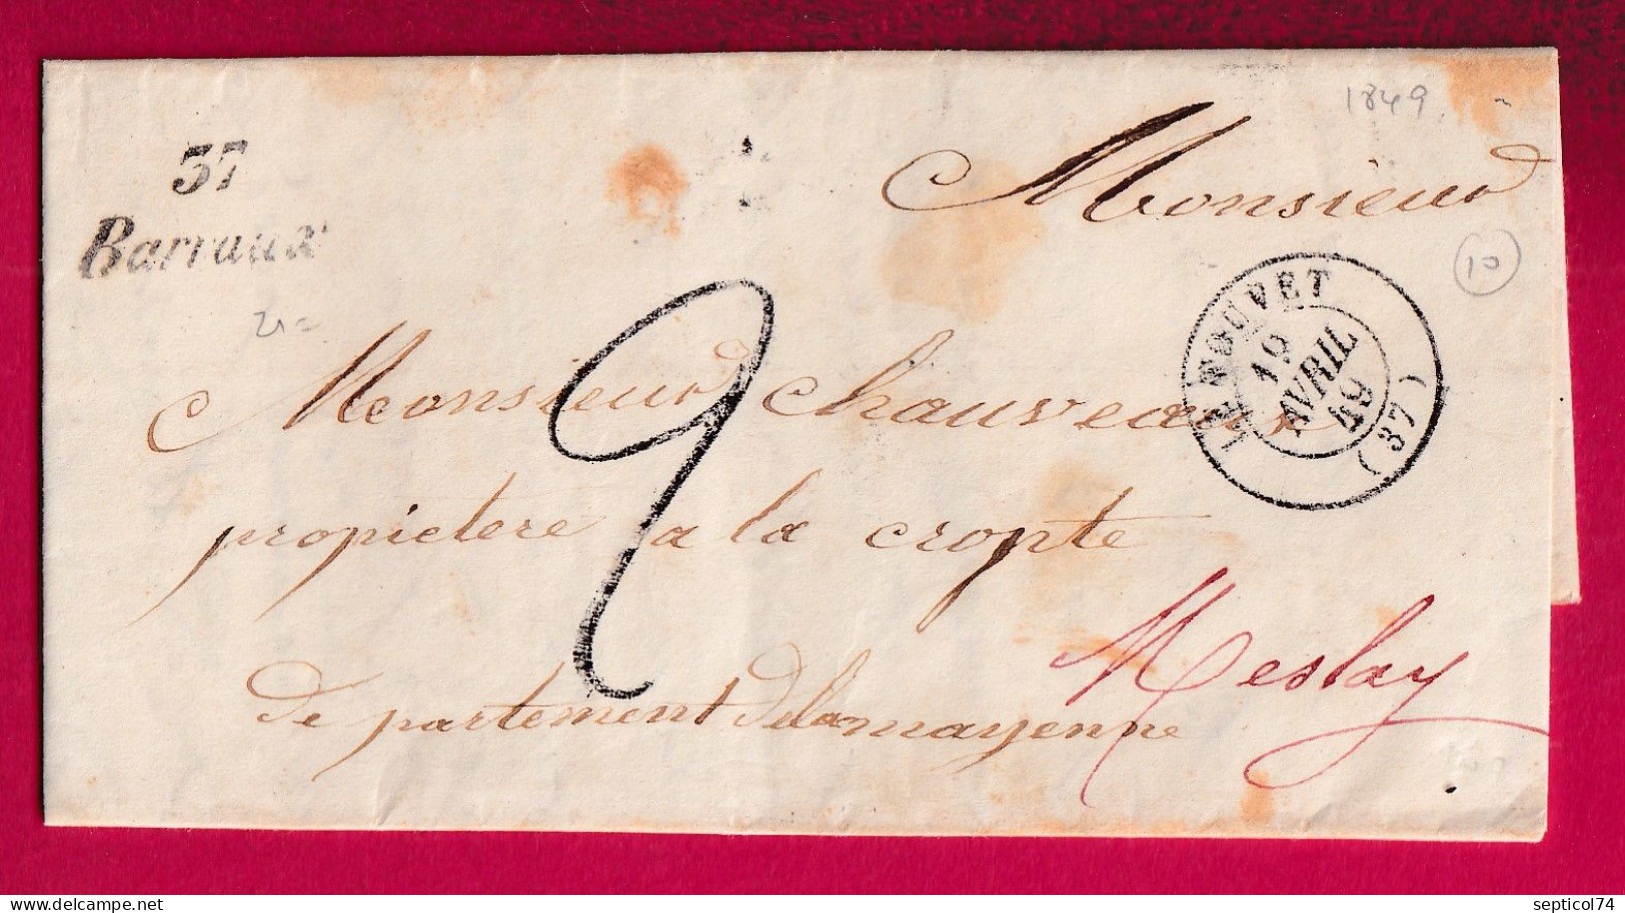 1849
37
Barraux
Monsieur
10
LE TOUVET
19
AVRIL
49
(37)
2
Monsieur chauveau
propietere a la cropte
Meslay
de partement delamayenne
delcampe.net
septicol74